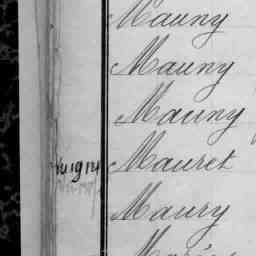 Mauny
Mauny
Mauny
Mauret
Maury